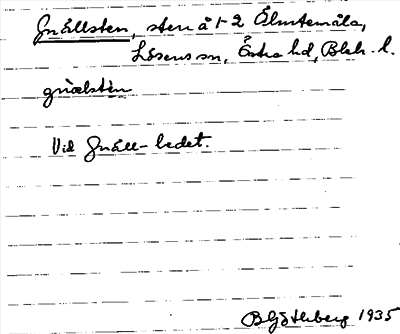 Gnällsten, sten å 1-2 Älmtemåla,
Lösens sn, Östra hd, Blek. l.
gnälstèn
Vid Gnäll-ledet.
B Götlberg 1935